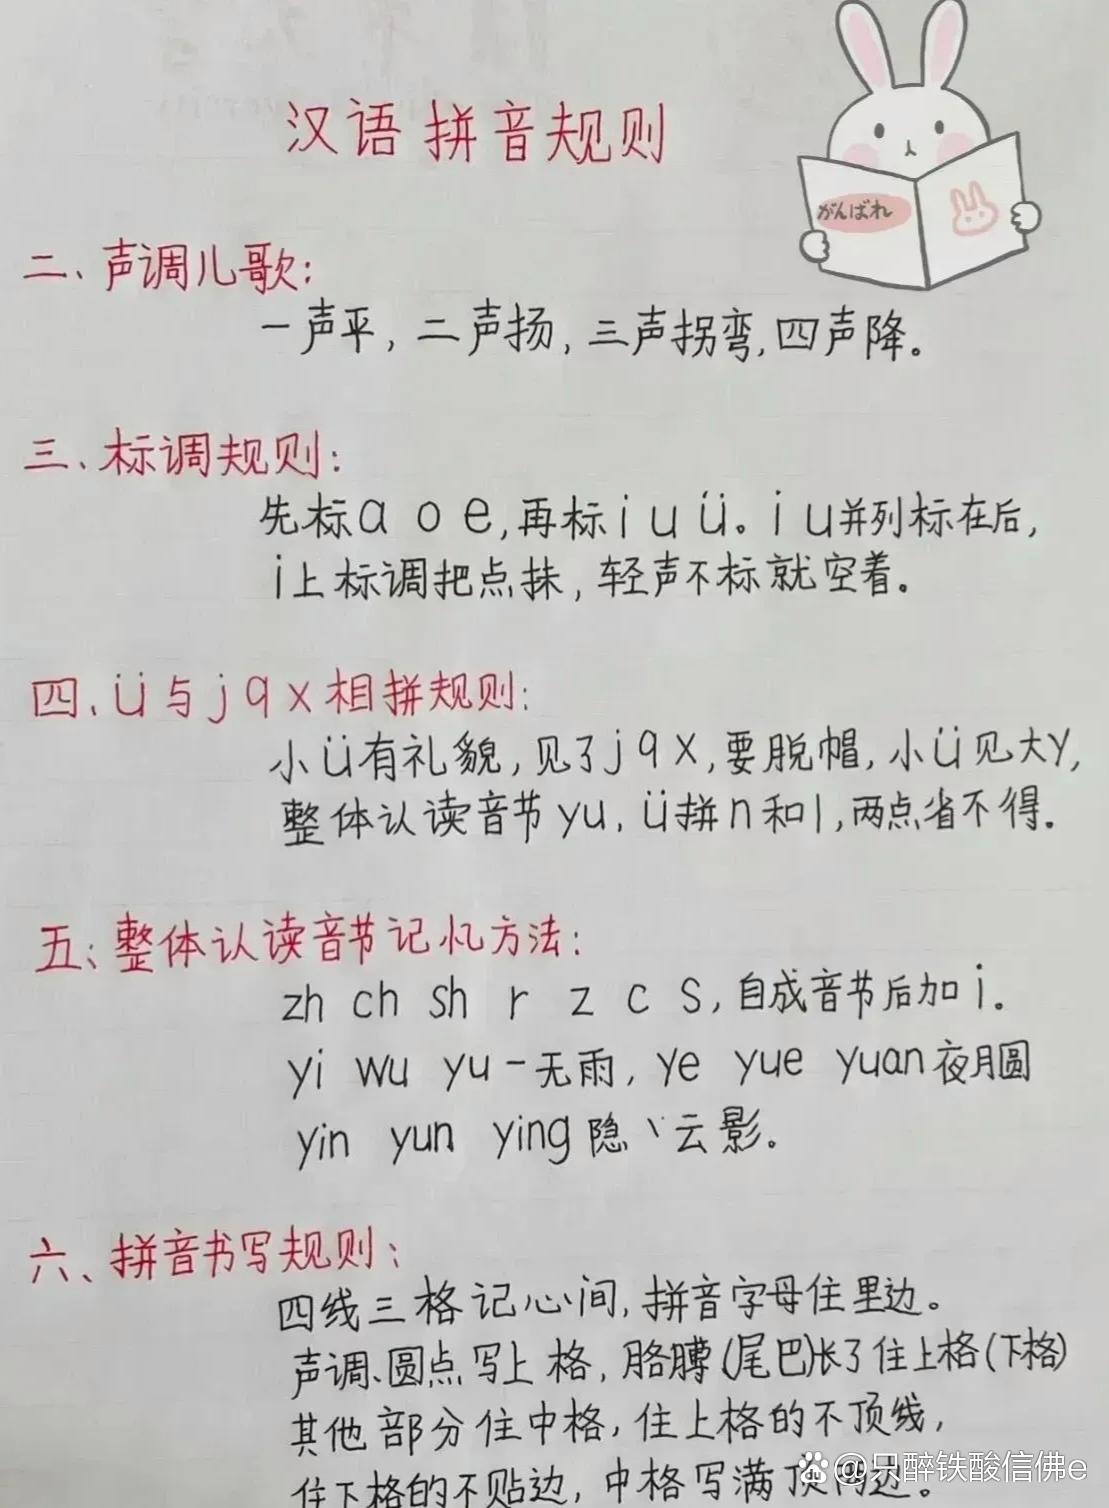 汉语拼音规则
がんばれ
二、声调儿歌:
一声平,二声扬,三声拐弯,四声降。
三、标调规则:
先标a o e,再标i u ü。i u并列标在后,
i上标调把点抹,轻声不标就空着。
四、ü与j q x相拼规则:
小ü有礼貌,见了j q x,要脱帽,小ü见大y,
整体认读音节yu,ü拼n和l,两点省不得.
五;整体认读音节记忆方法:
zh ch sh r z c s,自成音节后加i。
yi wu yu一无雨,ye yue yuan夜月圆
yin yun ying隐丶云影。
六、拼音书写规则;
四线三格记心间,拼音字母住里边。
声调、圆点写上格,胳膊(尾巴)长了住上格(下格)
其他部分住中格,住上格的不顶线,
住下格的不贴边,中格写满顶两边。
@只醉铁酸信佛e